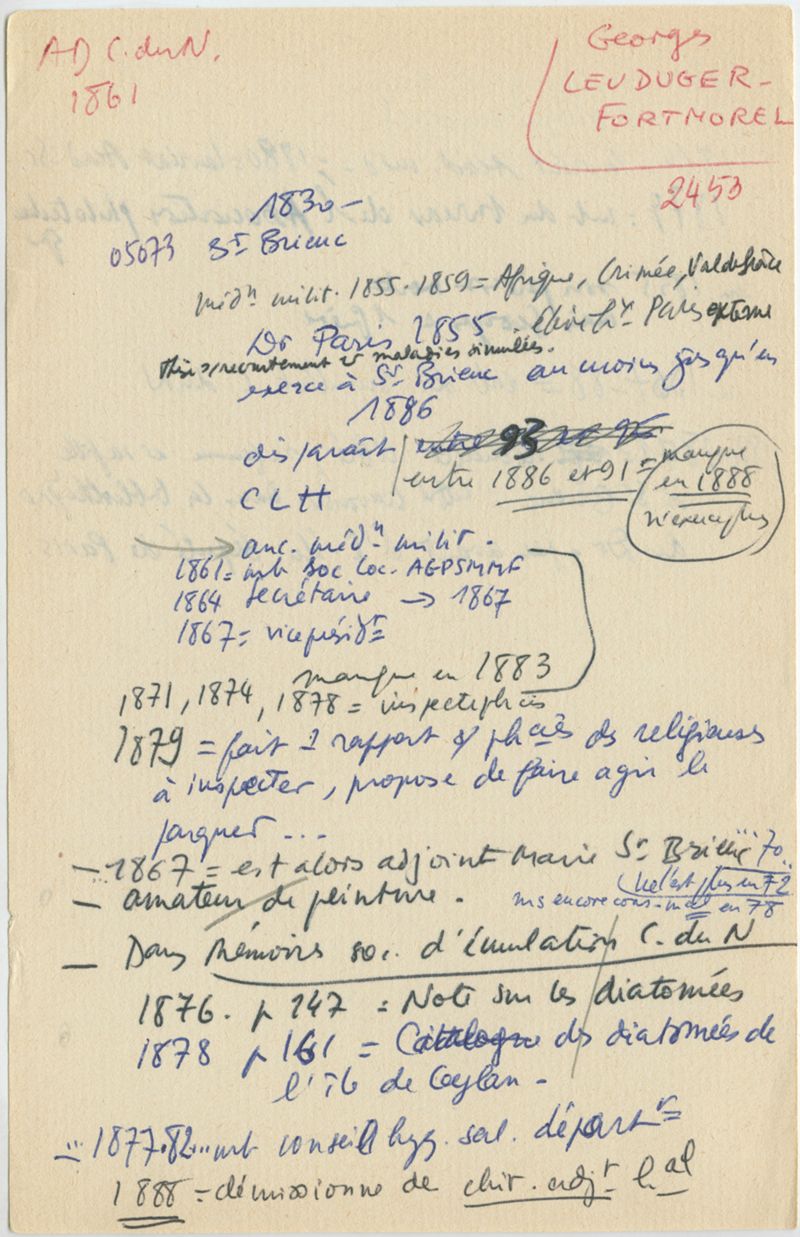 AD C. du N.
1861
Georges
LEUDUGER-
FORTMOREL
2453
1830 -
05073 St Brieuc
médn milit. 1855.1859 = Afrique, Crimée, Val de Grâce
Dr Paris 1855 - Paris externe
thèse recrutement et maladies simulées.
exerce à St Brieuc au moins jusqu'en
1886
disparaît 93
entre 1886 et 91 = manque
en 1888
n'exerce plus
CLH
→ anc. médn milit.
1861 = mb Soc loc. AGPSMMF
1864 secrétaire → 1867
1867 = viceprésidt =
manque en 1883
1871, 1874, 1878 = inspect phcis
1879 = fait 1 rapport s/ phcies des religieuses
à inspecter, propose de faire agir le
parquet ...
- 1867 = est alors adjoint Maire St Brieuc ... 70
ne l'est plus en 72
- amateur de peinture.
ms encore cons. mal en 78
- Dans Mémoires soc. d'émulation C. du N
1876. p 147 = Note sur les diatomées
1878 p 161 = Catalogue des diatomées de
l'île de Ceylan -
- 1877.82... mb conseil hyg. sal. départt =
1888 = démissionne de chir. adjt hal